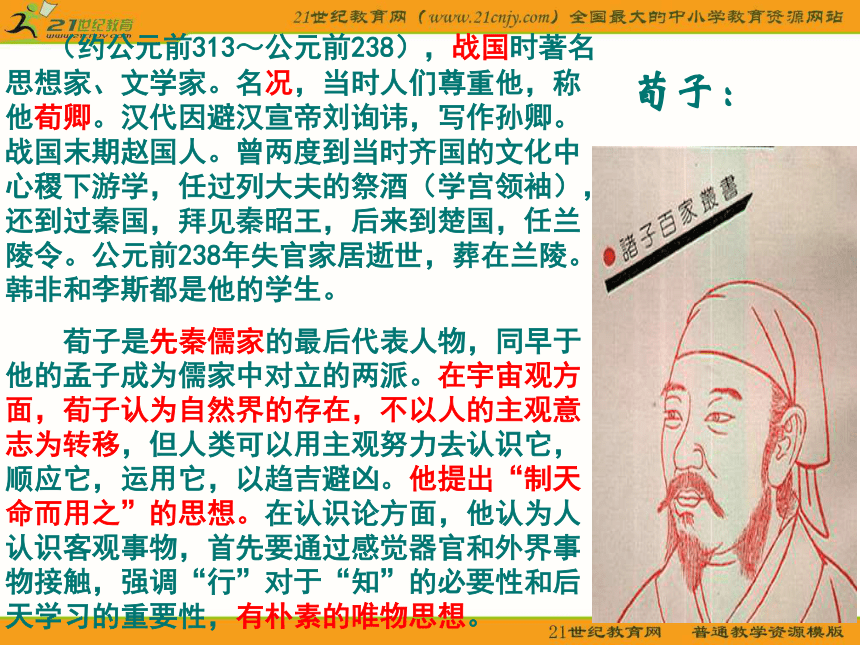 21世纪教育网
21世纪教育网（www.21cnjy.com）全国最大的中小学教育资源网站
（约公元前313～公元前238），战国时著名
思想家、文学家。名况，当时人们尊重他，称
他荀卿。汉代因避汉宣帝刘询讳，写作孙卿。
战国末期赵国人。曾两度到当时齐国的文化中
心稷下游学，任过列大夫的祭酒（学宫领袖），
还到过秦国，拜见秦昭王，后来到楚国，任兰
陵令。公元前238年失官家居逝世，葬在兰陵。
韩非和李斯都是他的学生。
荀子是先秦儒家的最后代表人物，同早于
他的孟子成为儒家中对立的两派。在宇宙观方
面，荀子认为自然界的存在，不以人的主观意
志为转移，但人类可以用主观努力去认识它，
顺应它，运用它，以趋吉避凶。他提出“制天
命而用之”的思想。在认识论方面，他认为人
认识客观事物，首先要通过感觉器官和外界事
物接触，强调“行”对于“知”的必要性和后
天学习的重要性，有朴素的唯物思想。
荀子：
諸子百家叢書
21世纪教育网 普通教学资源模版